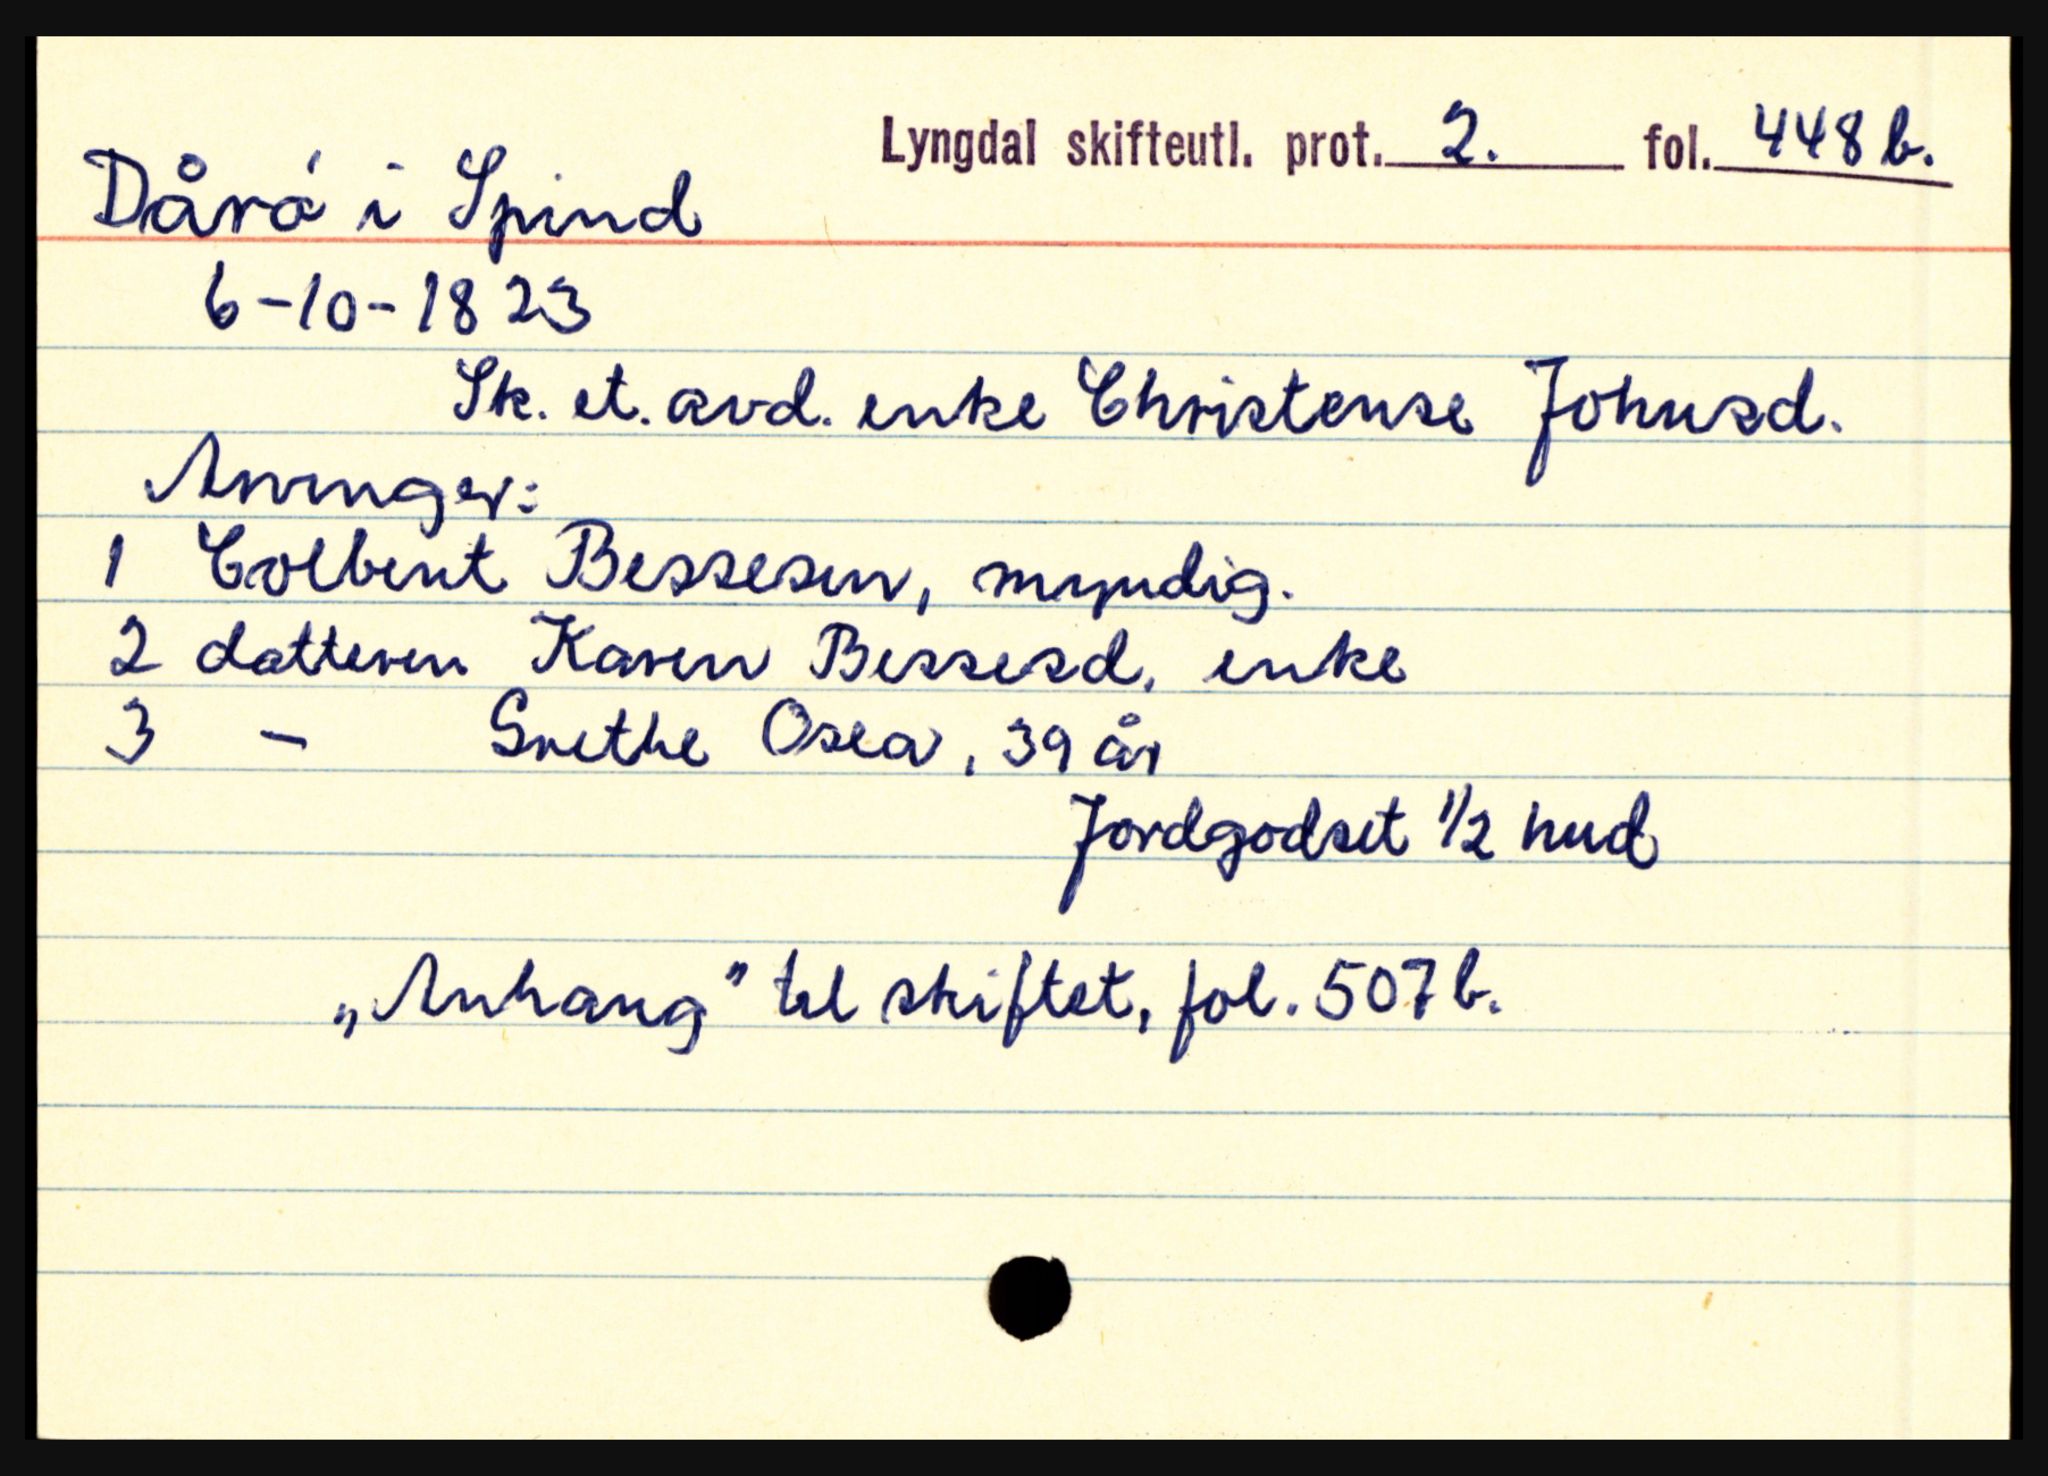 Lyngdal skifteutl. prot. 2. fol. 448 b.
Dårø i Spind
6-10-1823
Sk. et. avd. enke Christense Johnsd.
Arvinger:
1 Colbent Bessesen, myndig.
2 datteren Karen Bessesd, enke
3 – Grethe Osea, 39 år
Jordgodset 1/2 hud
„Anhang" til skiftet, fol. 507 b.